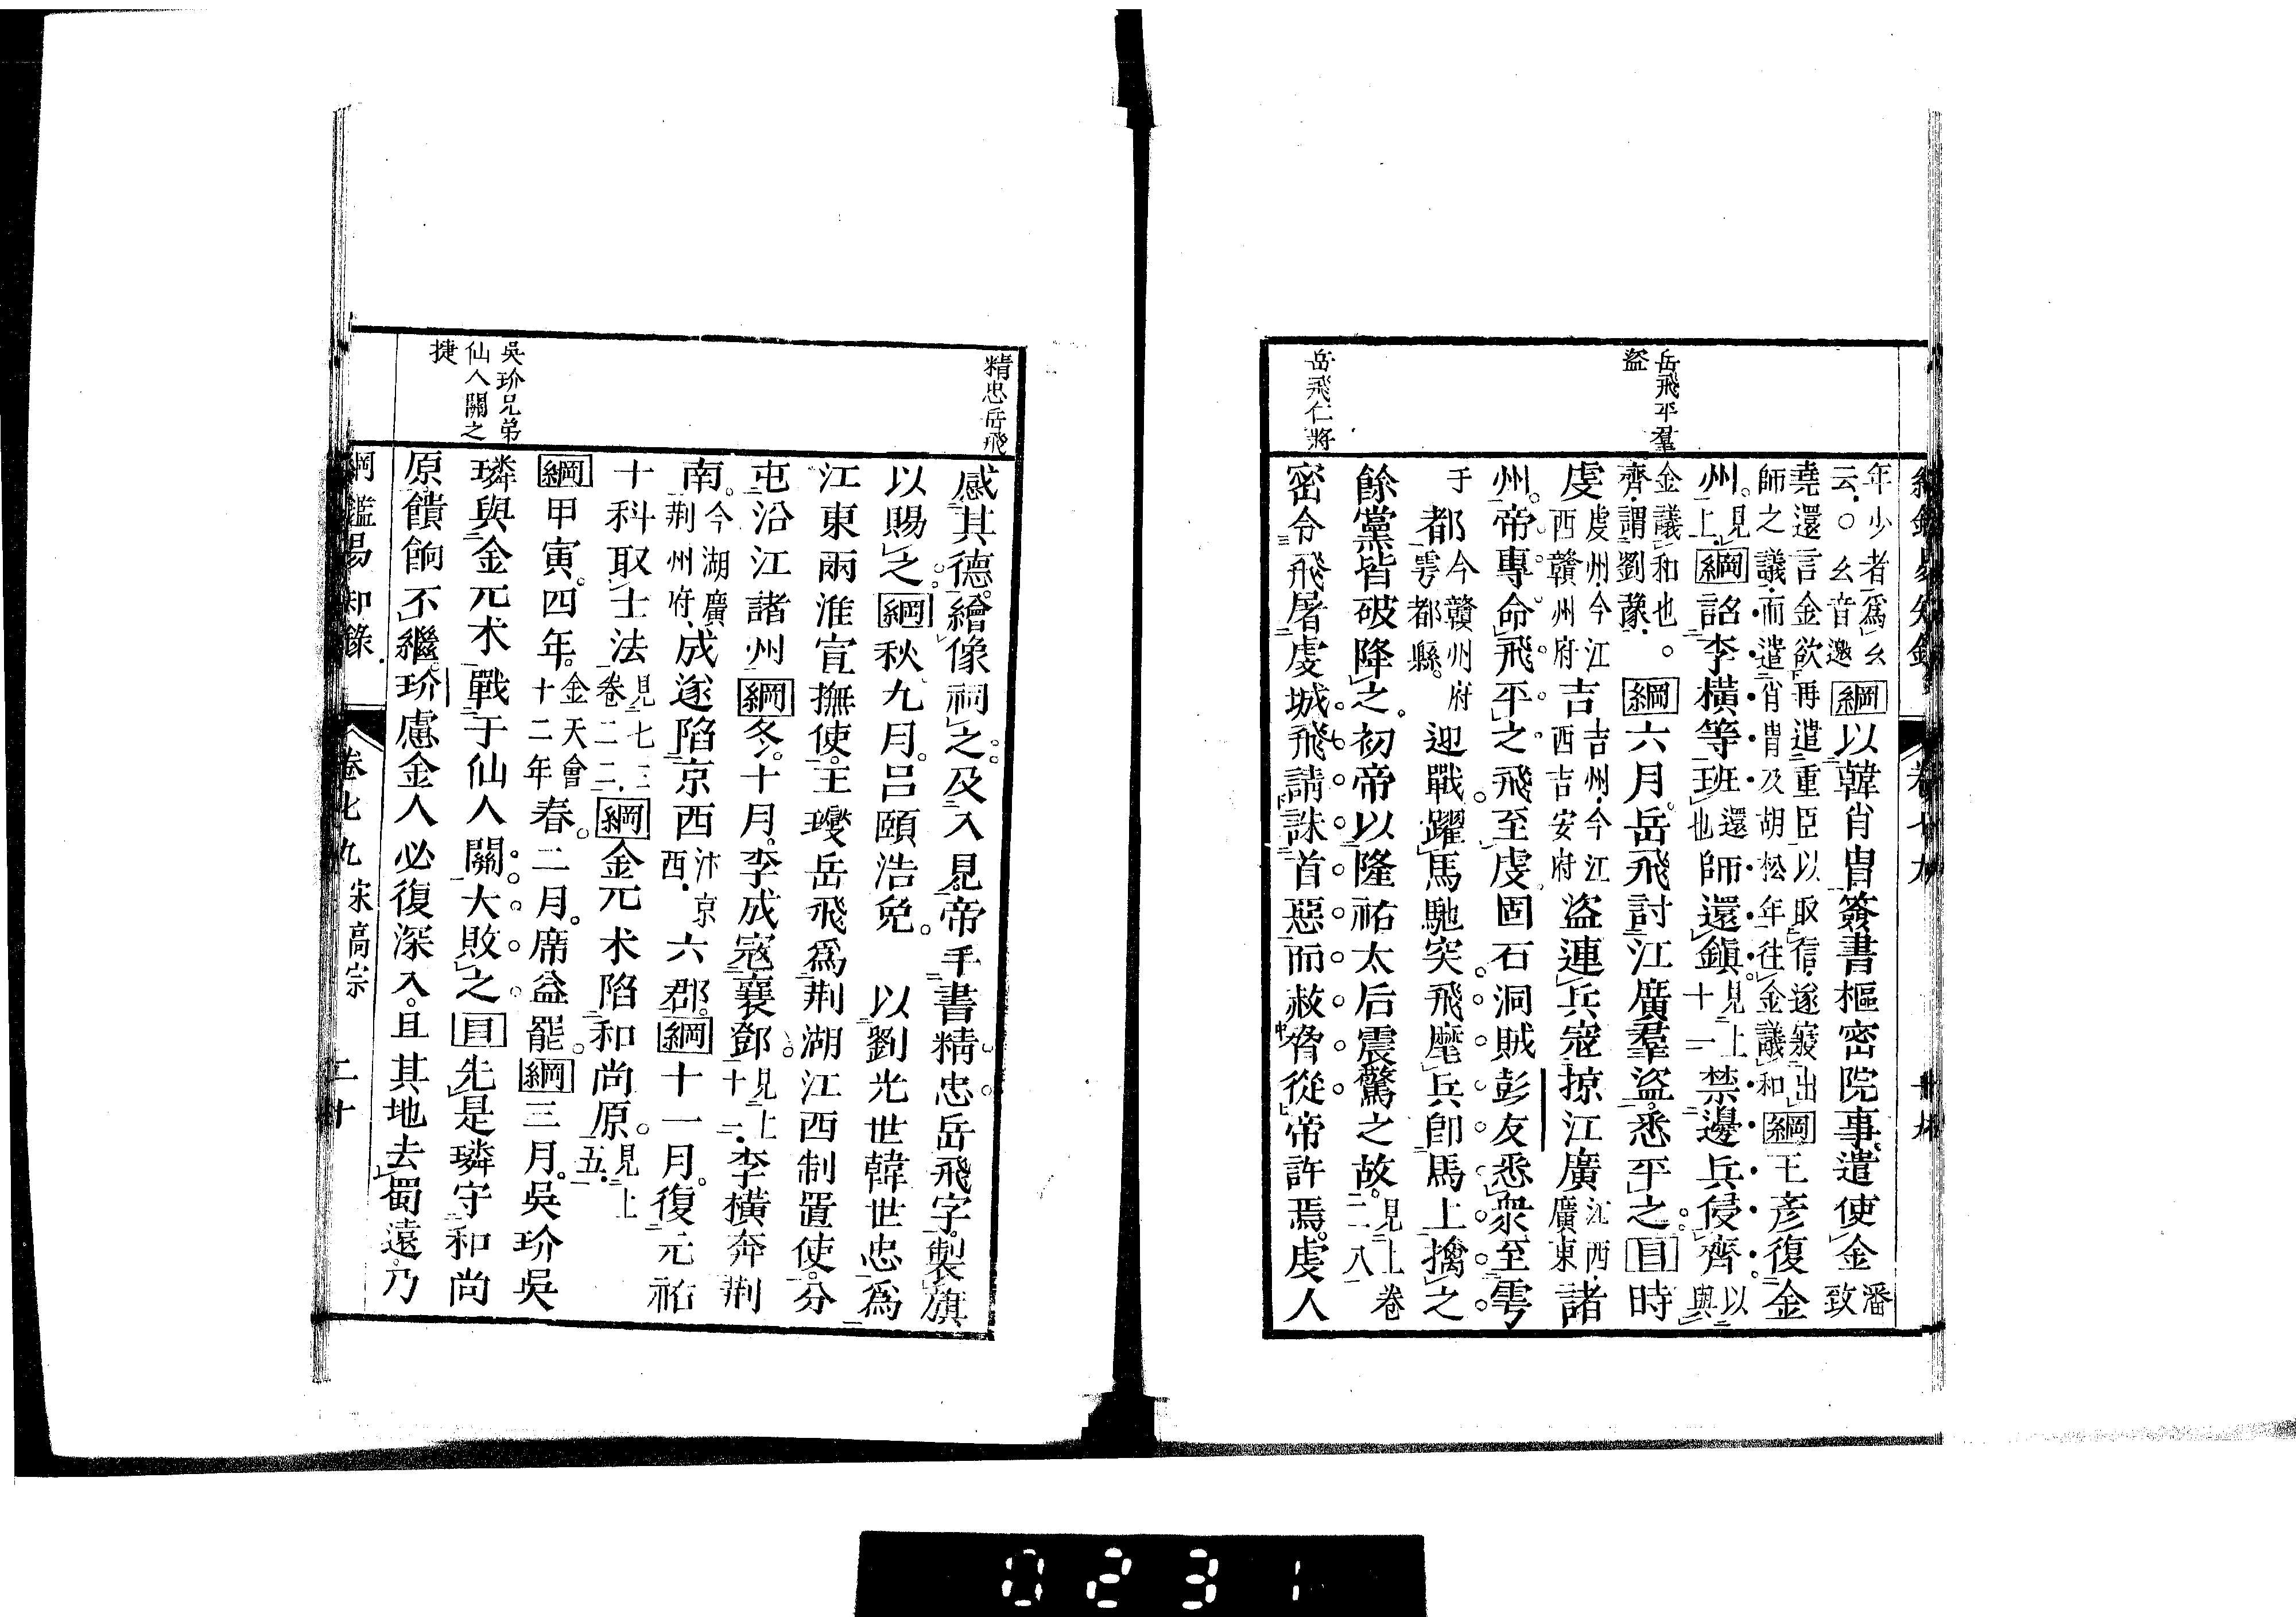 岳飛平羣
盜
岳飛仁將
年少者爲幺
云○幺音邀
綱以韓肖胄簽書樞密院事遣使金潘致
堯還言金欲再遣重臣以取信遂寢出
師之議而遣肖胄及胡松年往金議和
綱王彥復金
州見上綱詔李橫等班還也師還鎮見上十一禁邊兵侵齊以與
金議和也
齊謂劉豫
綱六月岳飛討江廣羣盜悉平之目時
虔虔州今江西贛州府吉吉州今江西吉安府盜連兵寇掠江廣江西廣東諸
州帝專命飛平之飛至虔固石洞賊彭友悉衆至雩
于都今贛州府雩都縣迎戰躍馬馳突飛麾兵卽馬上擒之
餘黨皆破降之初帝以隆祐太后震驚之故見上卷二八
密令飛屠虔城飛請誅首惡而赦脅從帝許焉虔人
精忠岳飛
吳玠兄弟
仙人關之
捷
感其德繪像祠之及入見帝手書精忠岳飛字製旗
以賜之綱秋九月呂頤浩免 以劉光世韓世忠爲
江東兩淮宣撫使王𤫉岳飛爲荆湖江西制置使分
屯沿江諸州綱冬十月李成寇襄鄧見上十二李橫奔荆
南今湖廣荆州府成遂陷京西汴京西六郡綱十一月復元祐
十科取士法見七三卷二二綱金元朮陷和尚原見上五
綱甲寅四年金天會十二年春二月席益罷綱三月吳玠吳
璘與金元朮戰于仙人關大敗之目先是璘守和尚
原饋餉不繼玠慮金人必復深入且其地去蜀遠乃
綱鑑易知錄 卷七九 宋高宗 二十
0231